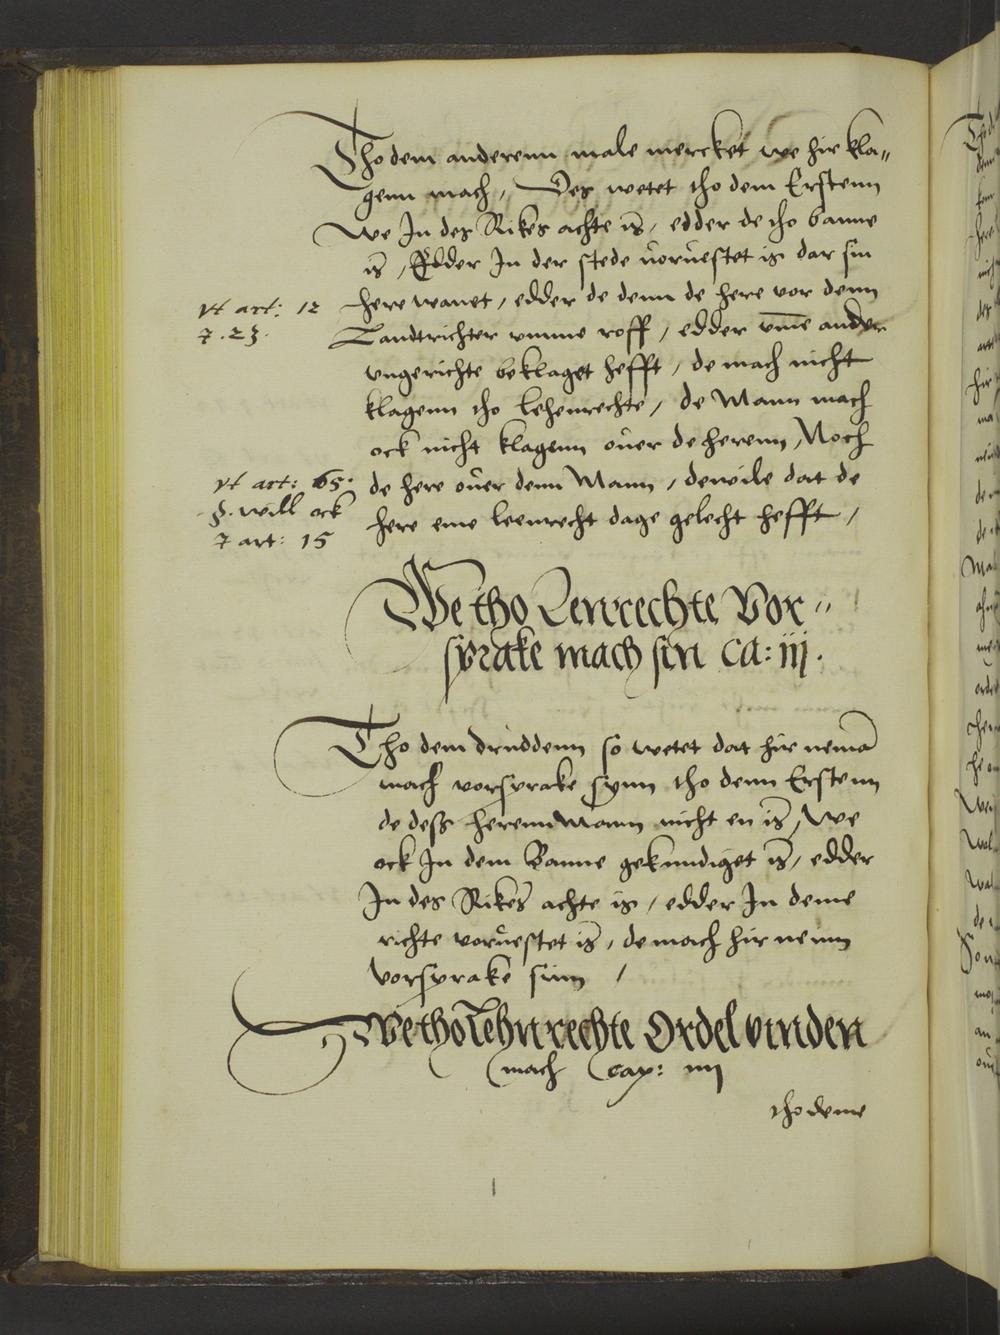 Tho dem anderenn male mercket we hir kla„
genn mach, Des wetet tho dem Erstenn
We In des Rikes achte is, edder de tho banne
is, Edder In der stede voruestet is dar sin
here wanet, edder de denn de here vor denn
Landtrichter vmme roff, edder vm̄e ander
vngerichte beklaget hefft, de mach nicht
klagenn tho lehenrechte, de Mann mach
ock nicht klagenn ouer de herenn, Noch
de here ouer denn Mann, dewile dat de
here eme leenrecht dage gelecht hefft,
vt art: 12
7. 23.
vt art: 65.
§. will ock
7 art: 15
We tho Lenrechte Vor„
sprake mach sin ca: iij.
Tho dem druddenn so wetet dat hir nema
mach vorsprake synn tho denn Erstenn
de dess herenn Mann nicht en is, We
ock In dem Banne gekundiget is, edder
In des Rikes achte is, edder In deme
richte voruestet is, de mach hir nenn
vorsprake sinn,
We tho Lehnrechte Ordel vinden
mach Cap: iiij
tho deme